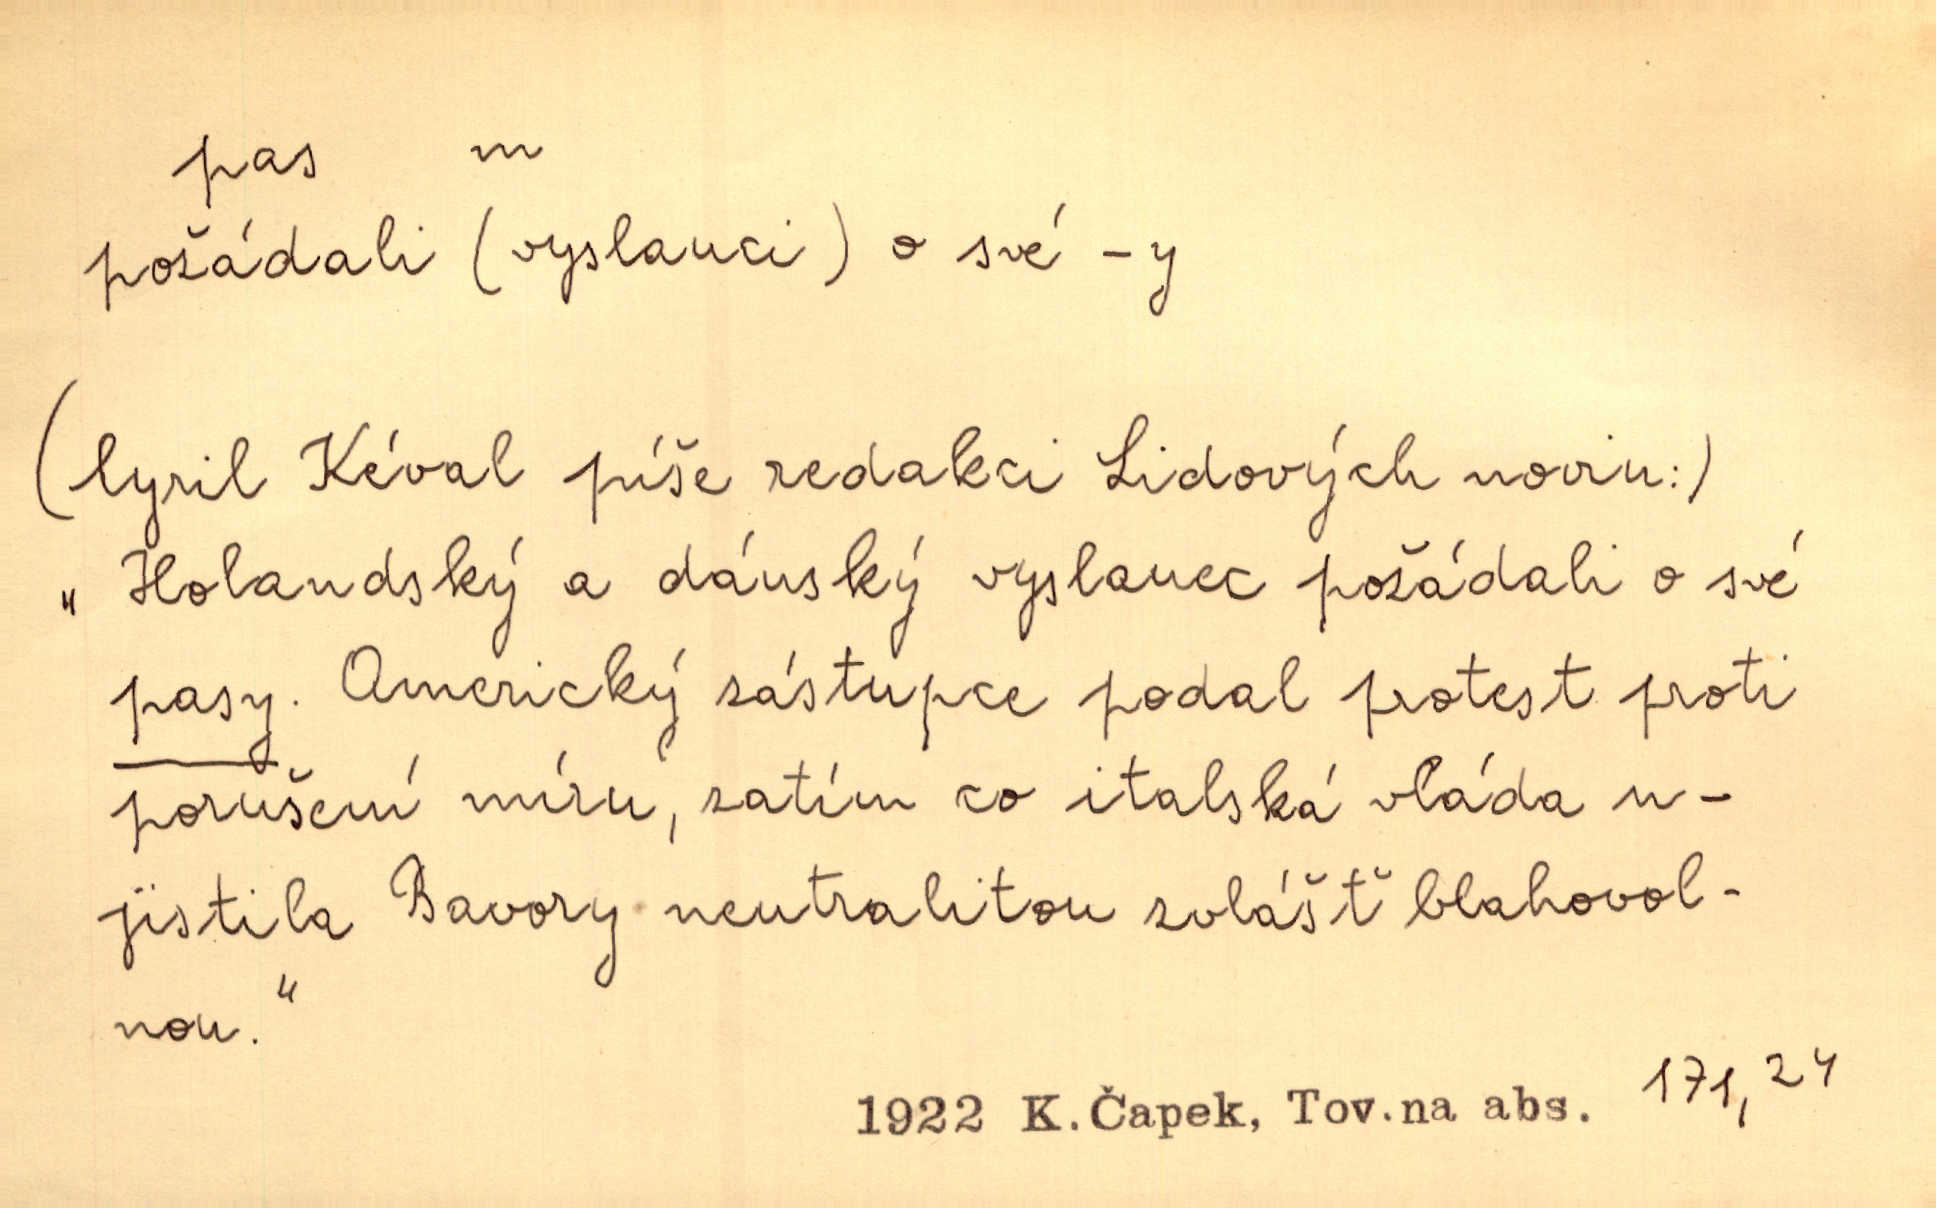 pas m
požádali (vyslanci) o své -y
(Cyril Kéval píše redakci Lidových novin:)
„Holandský a dánský vyslanec požádali o své
pasy. Americký zástupce podal protest proti
porušení míru, zatím co italská vláda u-
jistila Bavory neutralitou zvlášť blahovol-
nou.“
1922 K.Čapek, Tov.na abs. 171, 24